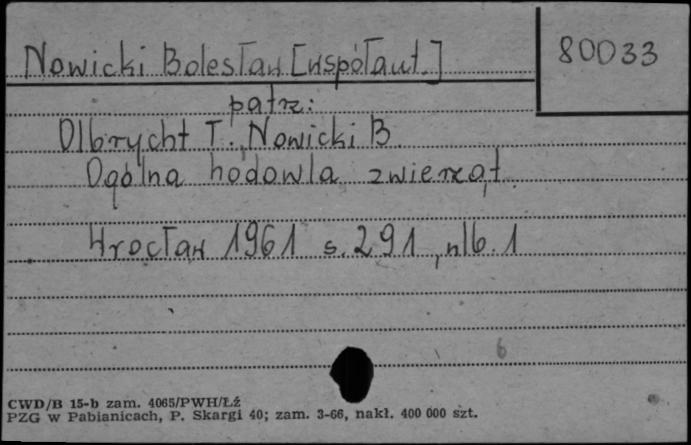 Nowicki Bolesław [współaut.]
80033
patrz:
Olbrycht T., Nowicki B.
Ogólna hodowla zwierząt.
Wrocław 1961 s. 291, nlb. 1
6
CWD/B 15-b zam. 4065/PWH/Łź
PZG w Pabianicach, P. Skargi 40; zam. 3-66, nakł. 400 000 szt.